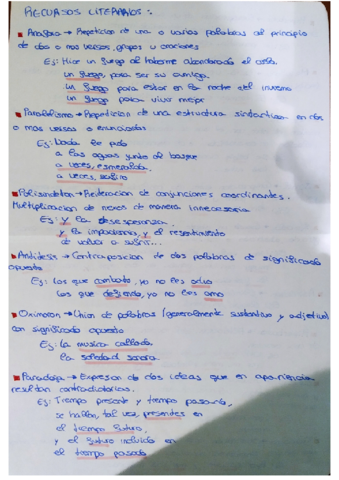 RECURSOS LITERARIOS:
■ Anáfora → Repetición de una o varias palabras al principio
de dos o mas versos, grupos u oraciones
Ej: Hice un fuego al haberme abandonado el
un fuego para ser su amigo.
un fuego para estar en la noche del invierno
un fuego para vivir mejor
■ Paralelismo → Repetición de una estructura sintáctica en dos
o mas versos o enunciados
Ej:
a las aguas junto al bosque
a veces, esmeralda
a veces, zafiro
■ Polisíndeton → Reiteración de conjunciones coordinantes.
Multiplicación de nexos de manera innecesaria
Ej: y la desesperanza
y la impaciencia, y el resentimiento
de volver a sufrir...
■ Antítesis → Contraposición de dos palabras de significado
opuesto
Ej: Los que combato, yo no los odio
Los que defiendo, yo no los amo
■ Oxímoron → Union de palabras (generalmente sustantivo y adjetivo)
con significado opuesto
Ej: La musica callada
la soledad sonora.
■ Paradoja → Expresion de dos ideas que en apariencia
resultan contradictorias.
Ej: Tiempo presente y tiempo pasado,
se hallan, tal vez, presentes en
el tiempo futuro,
y el futuro incluido en
el tiempo pasado